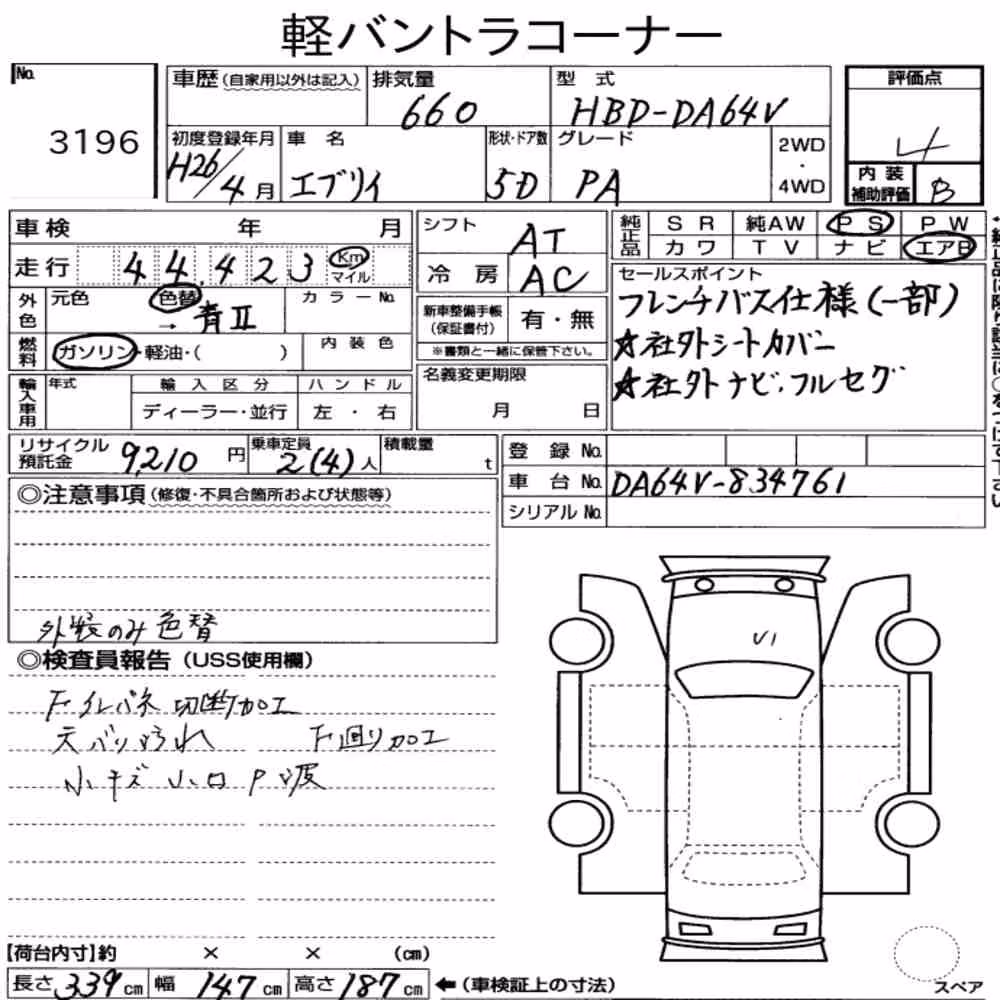 軽バントラコーナー
No. 3196
車歴(自家用以外は記入) 排気量 660 型式 HBD-DA64V 評価点 4
初度登録年月 H26/4月 車名 エブリイ 形状・ドア数 5D グレード PA 2WD・4WD
内装補助評価 B
車検 年 月 シフト AT
走行 44,423 Km マイル 冷房 AC
純正品 SR 純AW PS PW
カワ TV ナビ エアB
外色 元色 色替 → 青Ⅱ カラーNo.
新車整備手帳(保証書付) 有・無
※書類と一緒に保管下さい。
燃料 ガソリン・軽油・( ) 内装色
セールスポイント
フレンチバス仕様(一部)
★社外シートカバー
★社外ナビ.フルセグ
輸入車用 年式 輸入区分 ハンドル
ディーラー・並行 左・右
名義変更期限
月 日
リサイクル預託金 9210円 乗車定員 2(4)人 積載量 t
登録No.
車台No. DA64V-834761
シリアルNo.
◎注意事項(修復・不具合箇所および状態等)
外装のみ色替
◎検査員報告(USS使用欄)
切断加工
天バリ汚れ 下廻り加工
小キズ 小凹 P波
V1
【荷台内寸】約 × × (cm)
長さ 339cm 幅 147cm 高さ 187cm ←(車検証上の寸法)
スペア